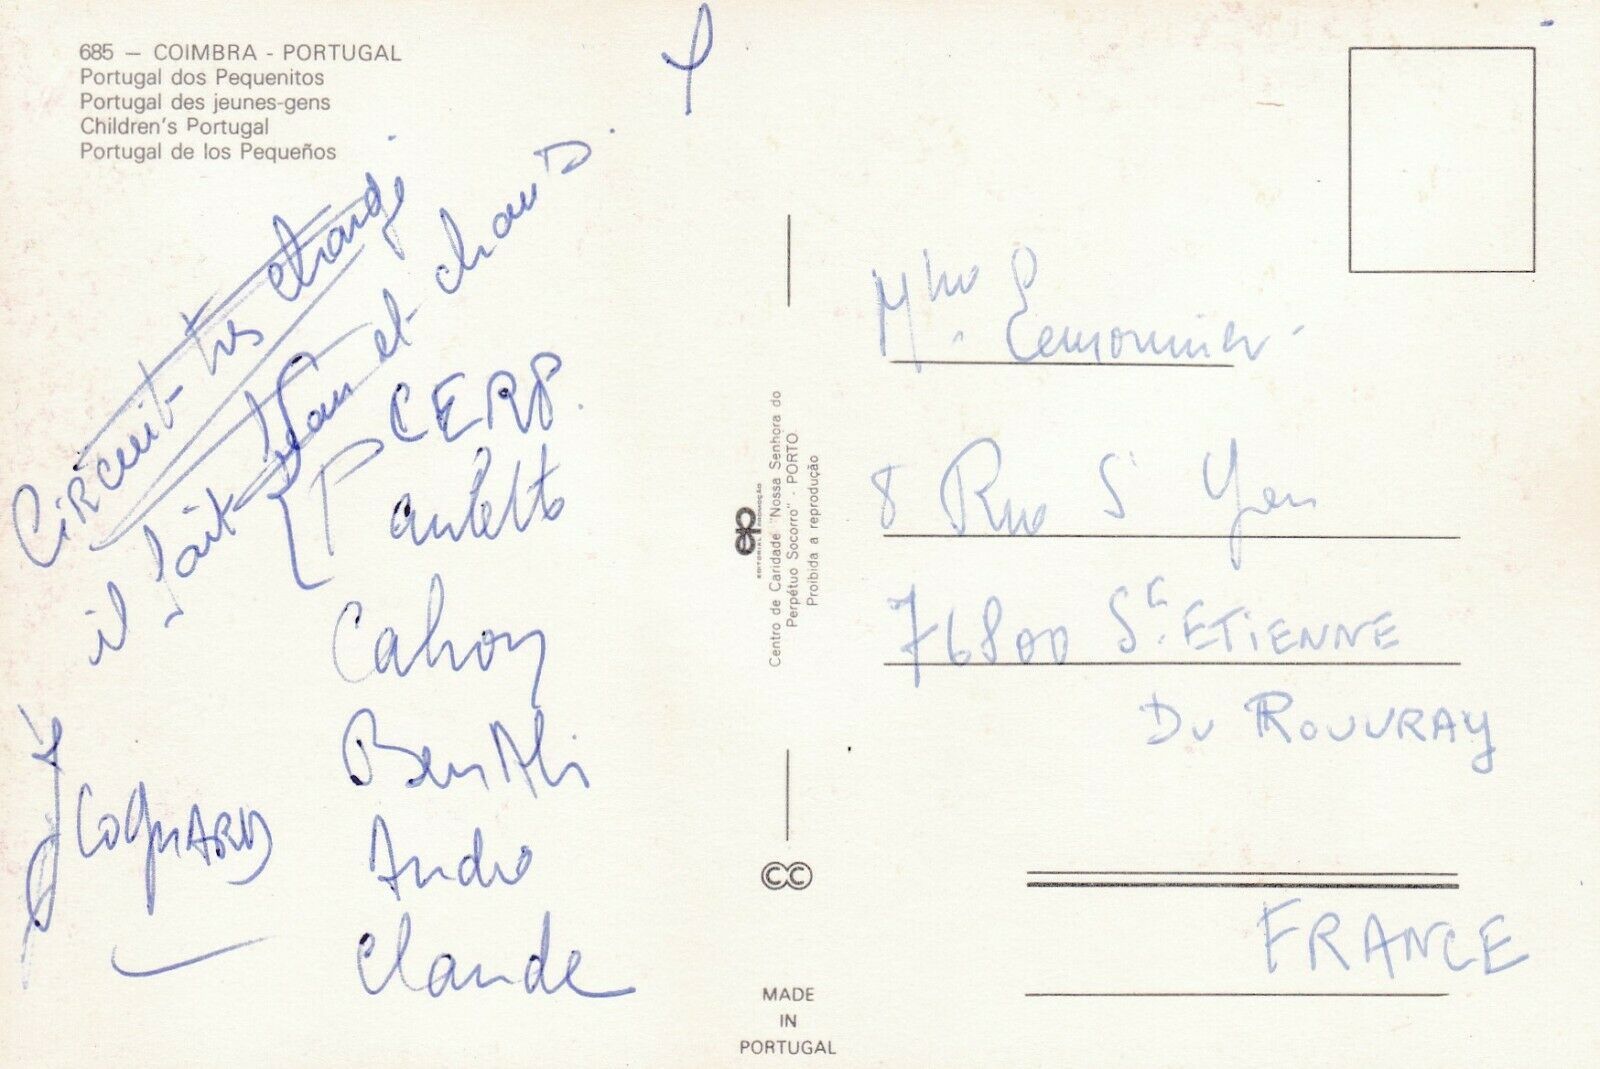 685 – COIMBRA - PORTUGAL
Portugal dos Pequenitos
Portugal des jeunes-gens
Children's Portugal
Portugal de los Pequeños
Circuit très chargé
il fait beau et chaud.
CERP.
Paulette
Cahon
Ben Ali
André
Claude
J COQUARD
EDITORIAL PROMOÇÃO
Centro de Caridade "Nossa Senhora do
Perpétuo Socorro" - PORTO
Proibida a reprodução
CC
MADE
IN
PORTUGAL
Mme Lemonnier
8 Rue St Yon
76800 St ETIENNE
DU ROUVRAY
FRANCE